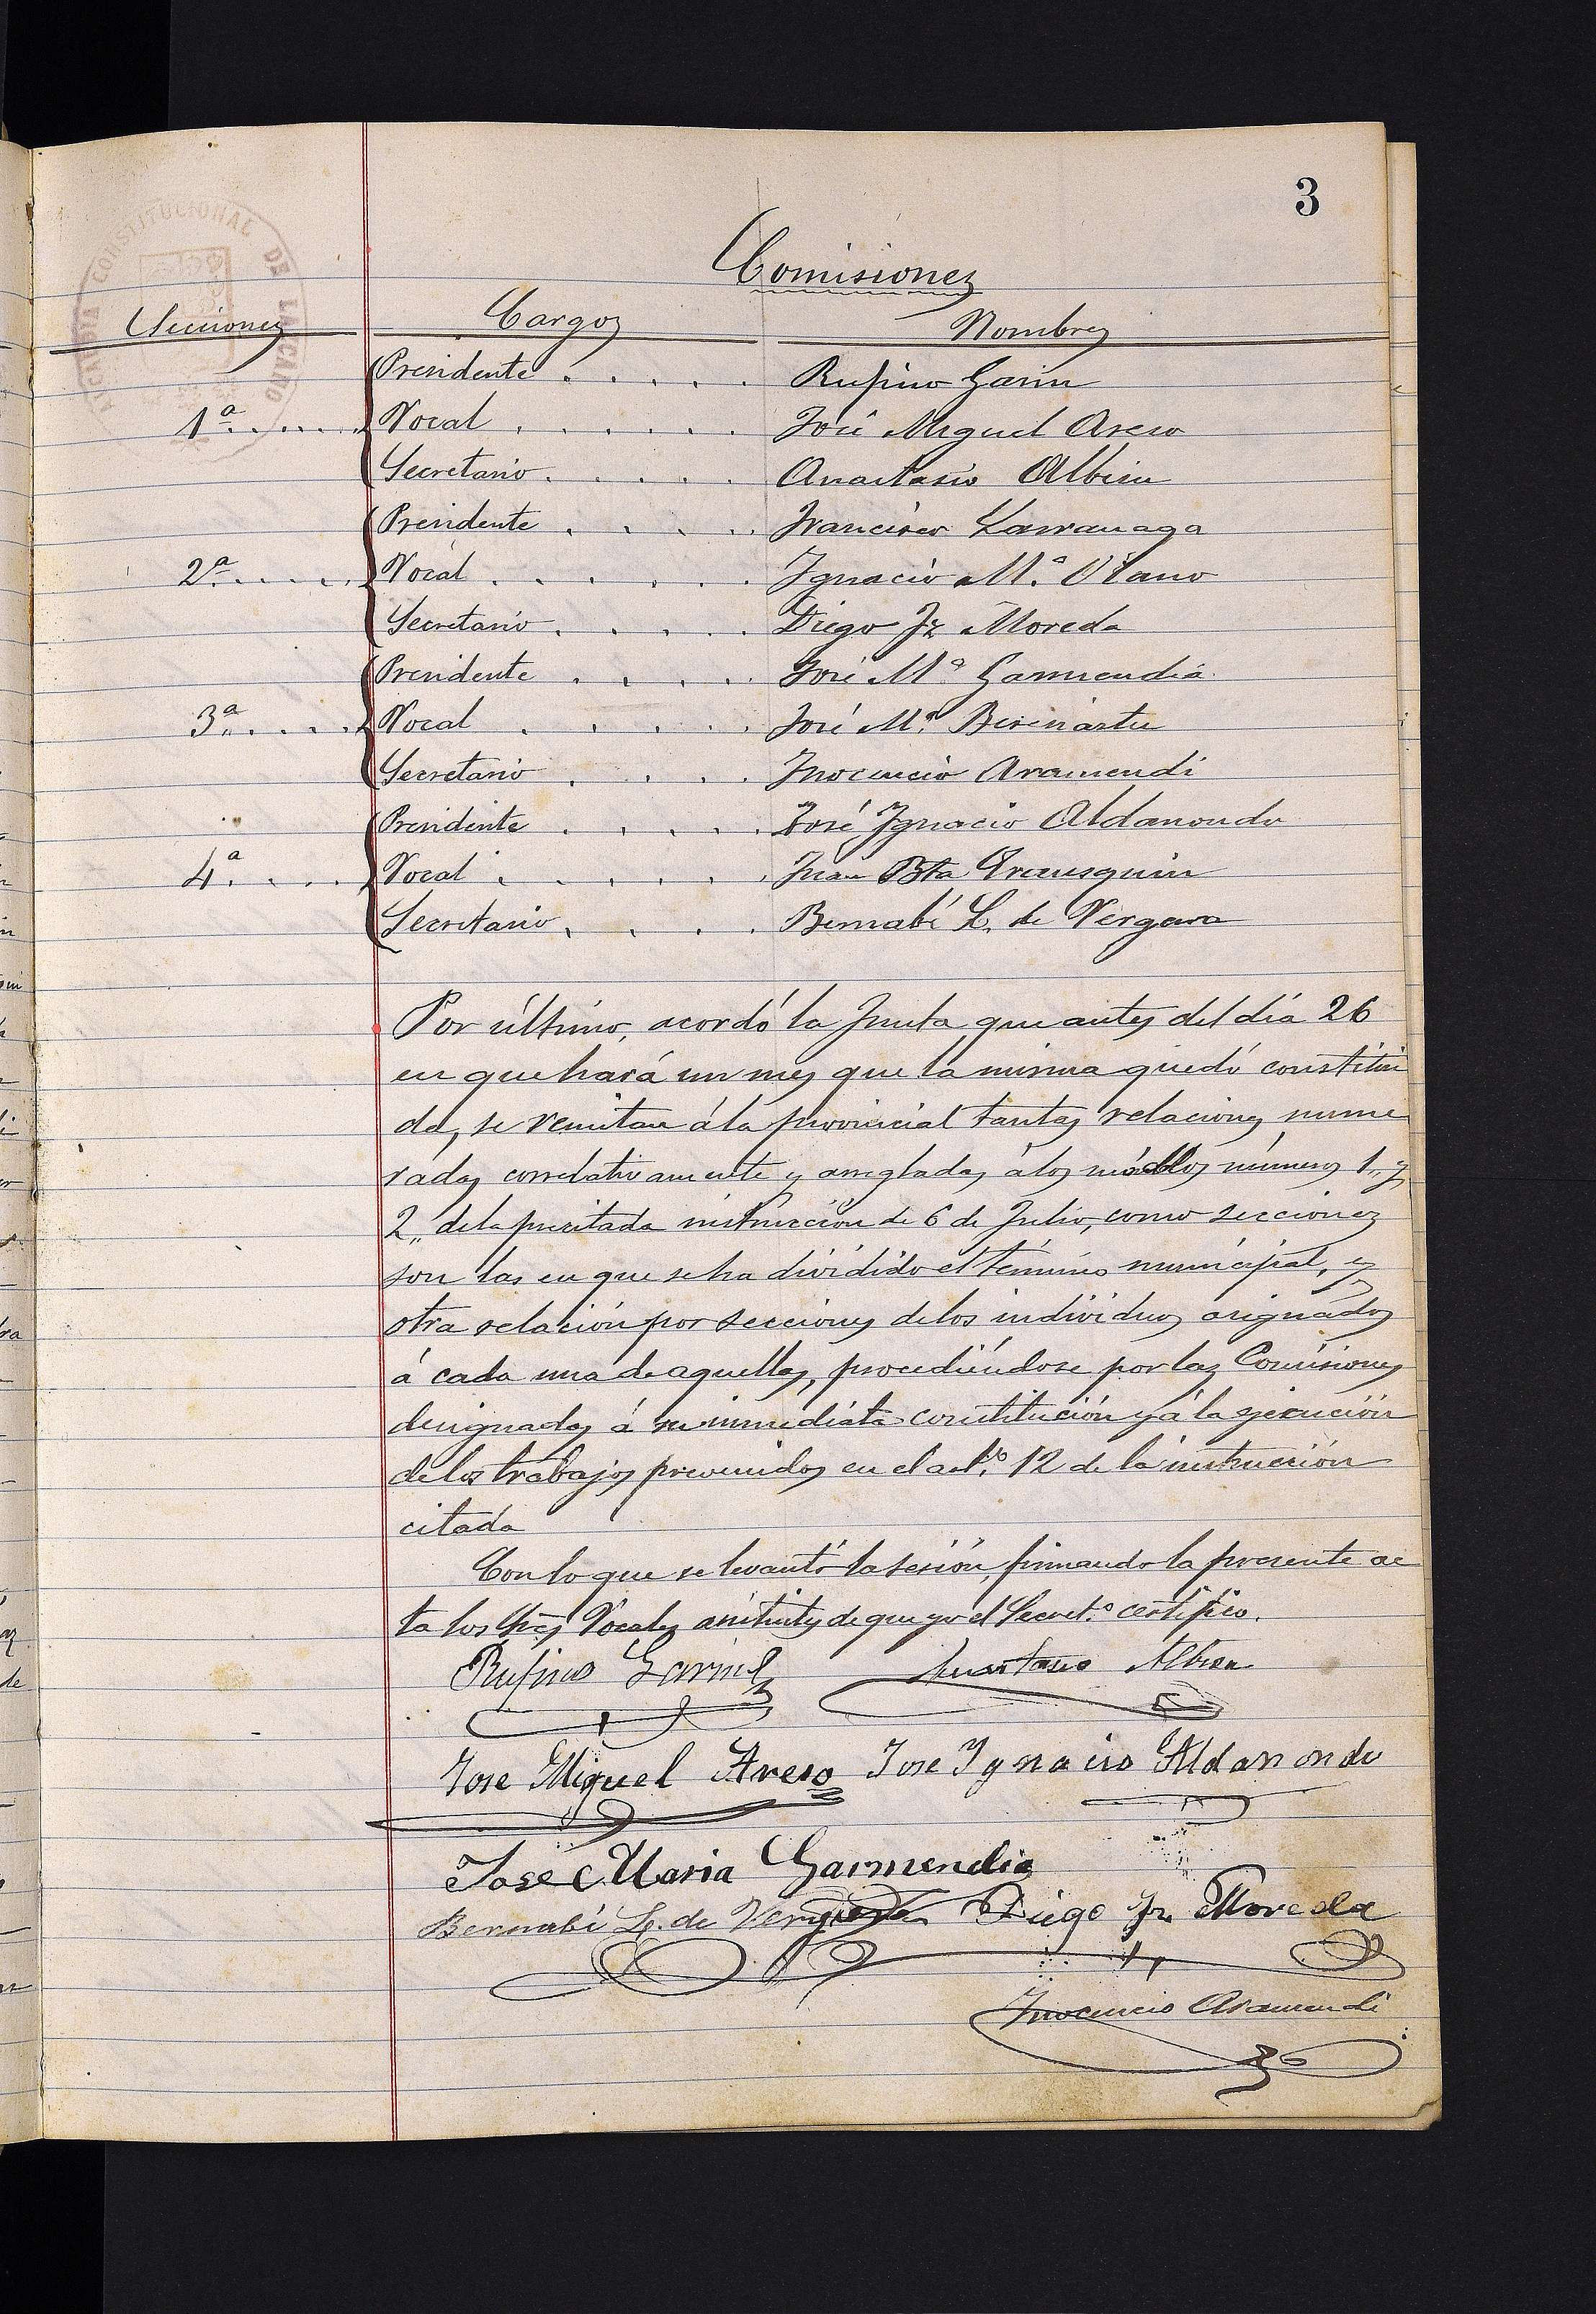 3
ALCALDIA CONSTITUCIONAL DE LAZCANO
Comisiones
Secciones Cargos Nombres
Presidente . . . . . Rufino Garin
1ª . . . . . Vocal . . . . . . José Miguel Areso
Secretario . . . . . Anastasio Albisu
Presidente . . . . Francisco Larranaga
2ª . . . . . Vocal . . . . . . Ignacio M.ª Olano
Secretario . . . . . Diego Fz Moreda
Presidente . . . . . José Mª Garmendia
3ª . . . . . Vocal . . . . . José M.ª
Secretario . . . . Inocencio Aramendi
Presidente . . . . . José Ignacio Aldanondo
4ª . . . . Vocal . . . . . . Juan Bta Erausquin
Secretario . . . . Bernabé L. de Vergara
Por último, acordó la Junta que antes del día 26
en que hará un mes que la misma quedó constitui
da, se remitan á la provincial tantas relaciones nume
radas correlativamente y arregladas á los modelos números 1" y
2" de la precitada instrucción de 6 de Julio, como secciones
son las en que se ha dividido el término municipal, y
otra relación por secciones de los individuos asignados
á cada una de aquellas, procediéndose por las Comisiones
designadas á su inmediata constitución y á la ejecución
de los trabajos prevenidos en el art.º 12 de la instrucción
citada
Con lo que se levantó la sesión, firmando la presente ac
ta los Sres Vocales asistentes de que yo el Secret.º certifico.
Rufino Garin Anastasio Albisu
Jose Miguel Areso Jose Ygnacio Aldanondo
José Maria Garmendia
Bernabé L. de Vergara Diego Fz Moreda
Inocencio Aramendi